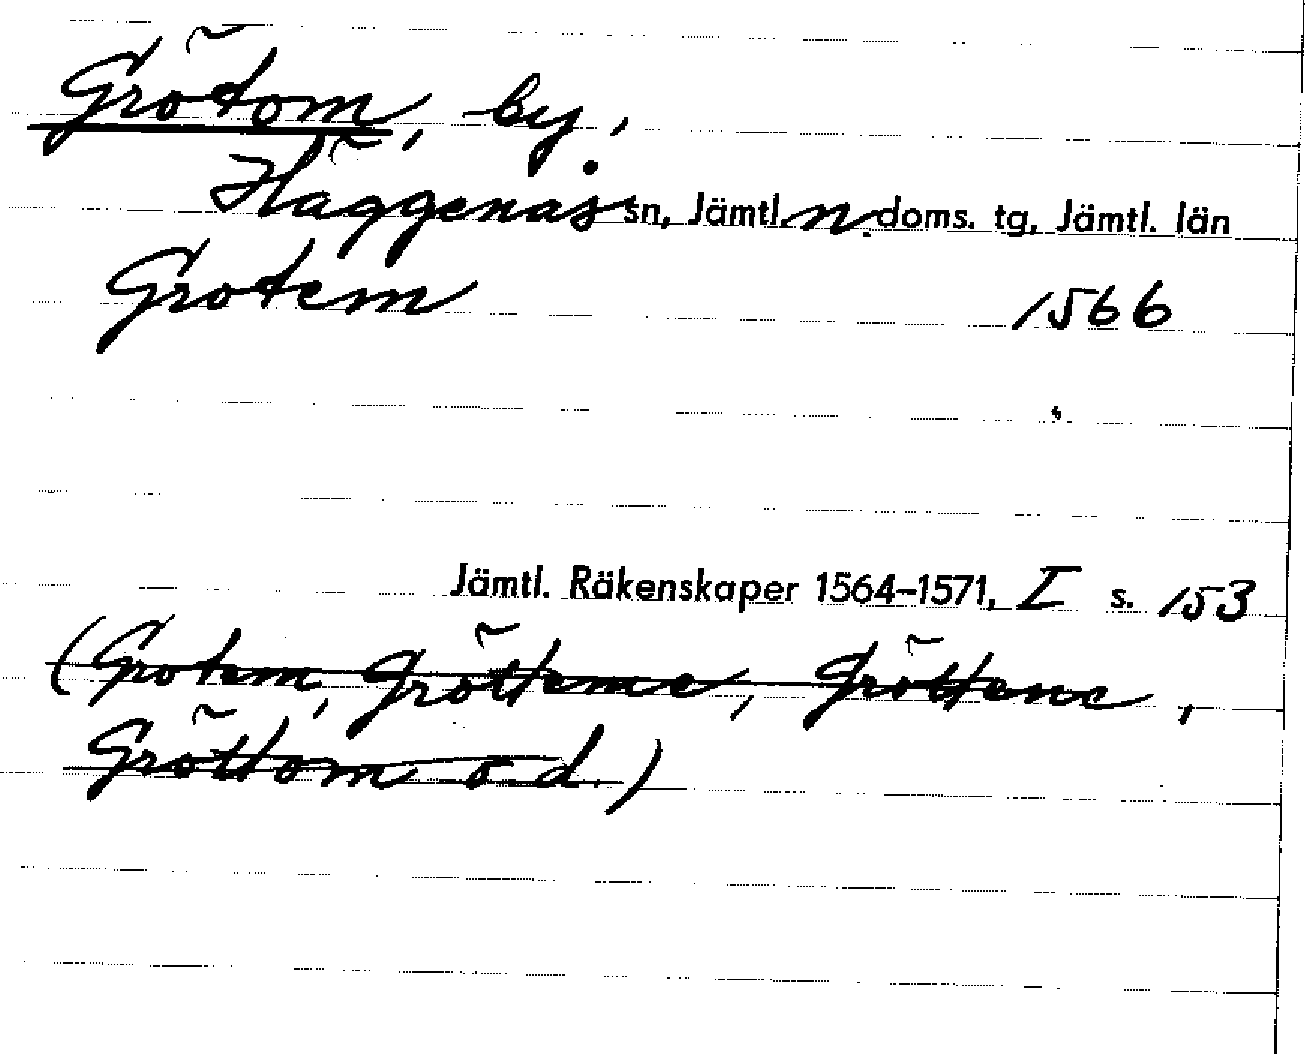 Grötom, by,
Häggenås sn, Jämtl. n. doms. tg, Jämtl. län
Grotem 1566
Jämtl. Räkenskaper 1564–1571, I s. 153
(Grotem, Grötteme, Gröttene,
Gröttom o d.)